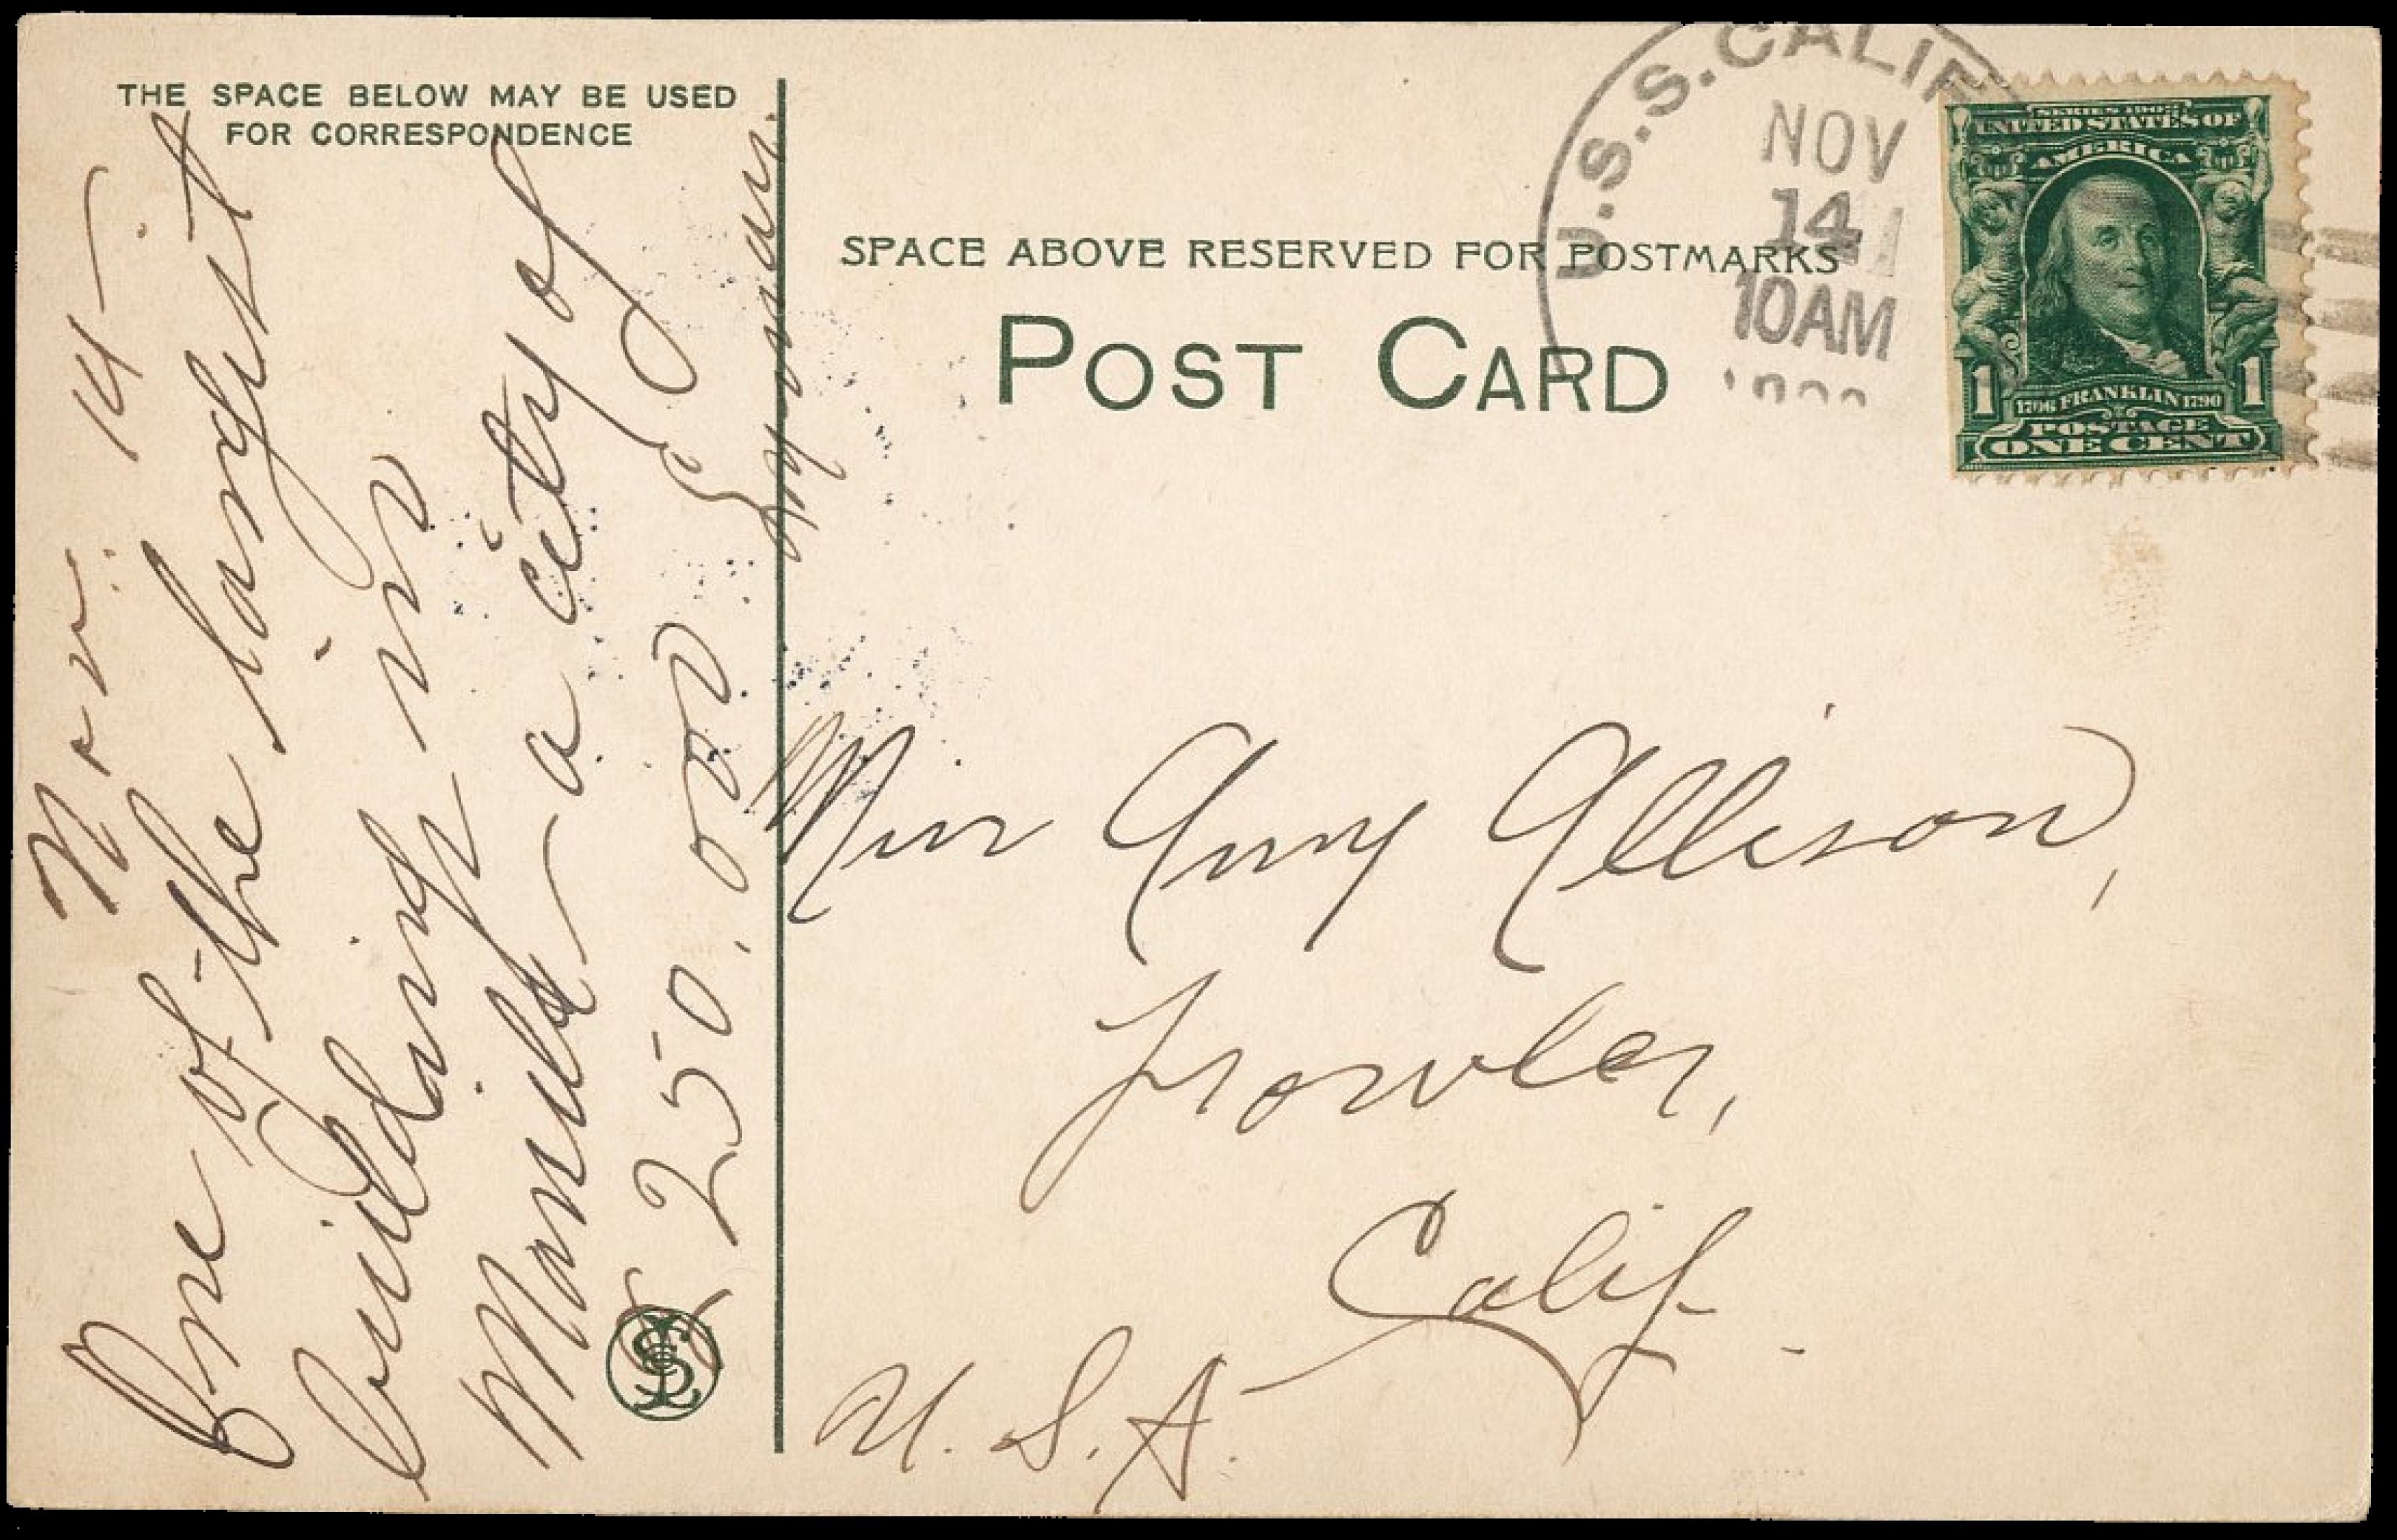 THE SPACE BELOW MAY BE USED
FOR CORRESPONDENCE
Nov. 14 -
One of the largest
buildings in
Manila - a city of
250,000
SPACE ABOVE RESERVED FOR POSTMARKS
POST CARD
U.S.S. CALIF
NOV
14
10AM
SERIES 1902
UNITED STATES OF
AMERICA
1706 FRANKLIN 1790
POSTAGE
1 1
ONE CENT
Miss Amy Allison,
Fowler,
Calif.
U.S.A.